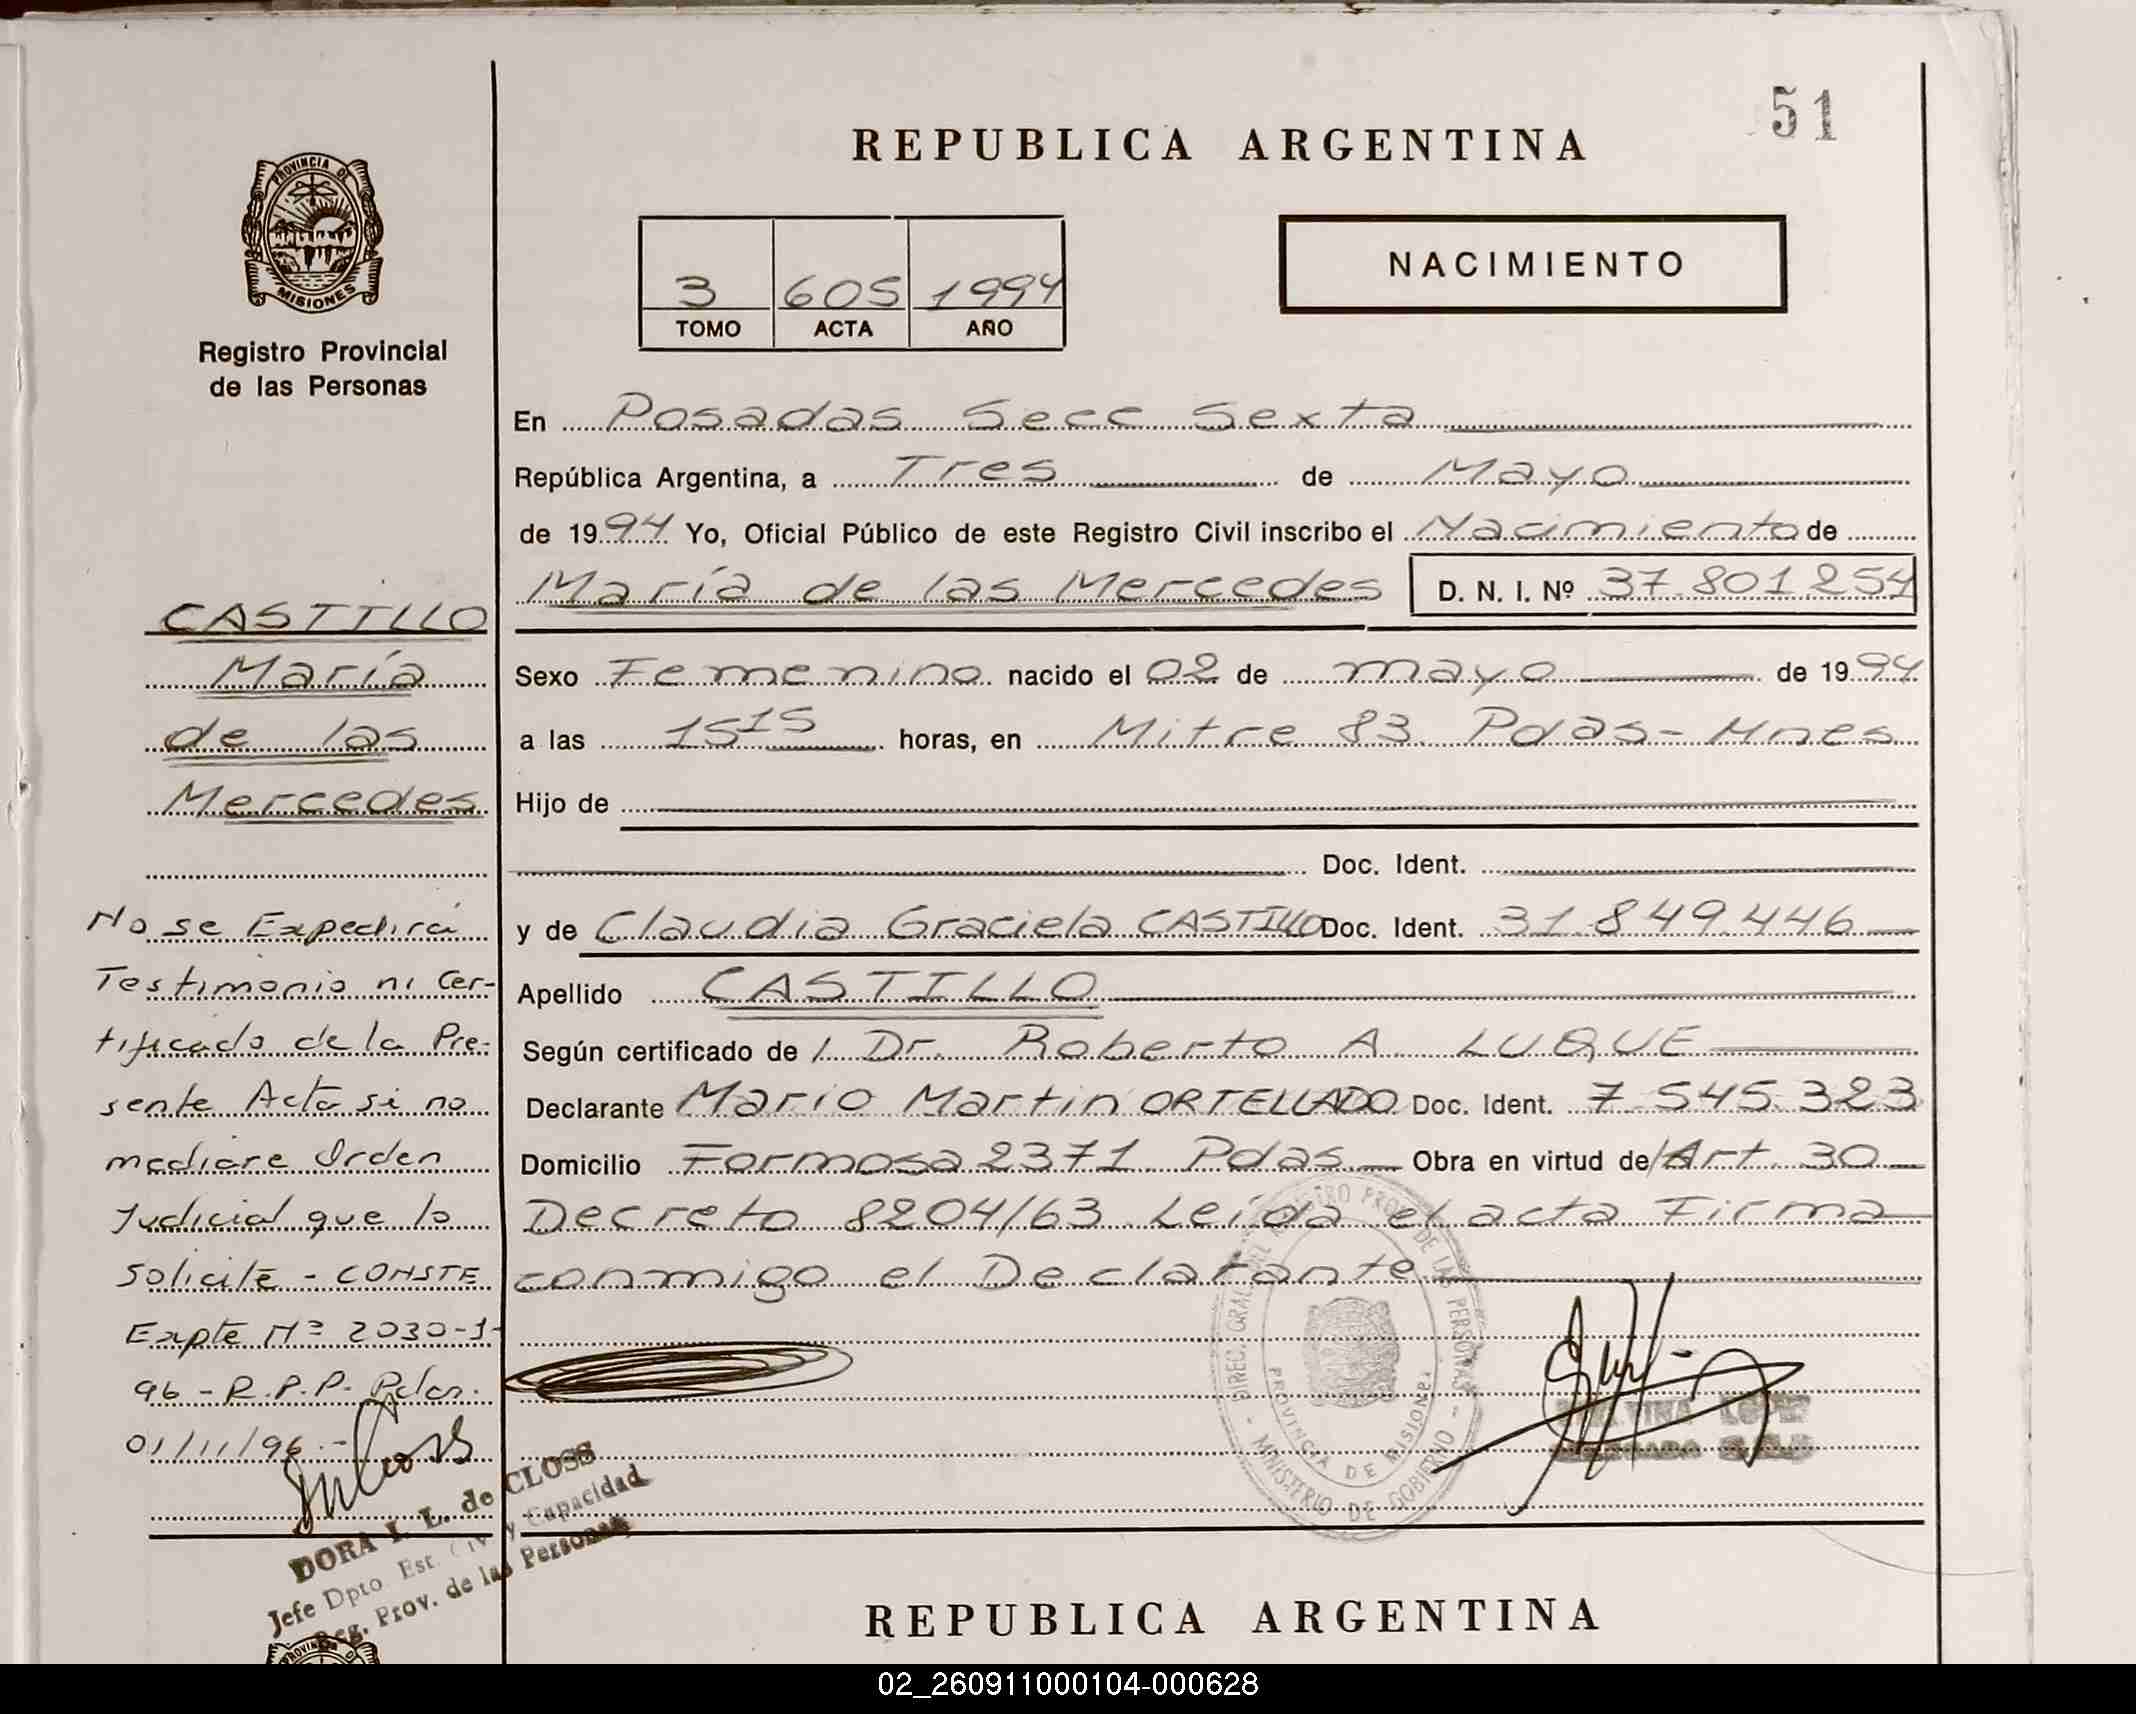 51
REPUBLICA ARGENTINA
PROVINCIA DE
MISIONES
Registro Provincial
de las Personas
NACIMIENTO
3 605 1994
TOMO ACTA AÑO
En Posadas Secc Sexta
República Argentina, a Tres de Mayo
de 1994 Yo, Oficial Público de este Registro Civil inscribo el Nacimiento de
María de las Mercedes D. N. I. Nº 37.801254
Sexo Femenino nacido el 02 de mayo de 1994
a las 15 15 horas, en Mitre 83 Pdas - Mnes
Hijo de
Doc. Ident.
y de Claudia Graciela CASTILLO Doc. Ident. 31.849.446
Apellido CASTILLO
Según certificado de / Dr. Roberto A. LUQUE
Declarante Mario Martin ORTELLADO Doc. Ident. 7.545.323
Domicilio Formosa 2371 Pdas. Obra en virtud de/ Art. 30
Decreto 8204/63 Leída el acta Firma
conmigo el Declarante
CASTILLO
María
de las
Mercedes
No se Expedirá
Testimonio ni Cer-
tificado de la Pre-
sente Acta si no
mediare Orden
Judicial que lo
Solicite - CONSTE
Expte Nº 2030-1-
96 - R.P.P. Pdas.
01/11/96.-
DORA I. L. de CLOSS
Jefe Dpto Est. Civ. y Capacidad
Reg. Prov. de las Personas
DIREC. GRAL. REGISTRO PROV. DE LAS PERSONAS
PROVINCIA DE MISIONES
MINISTERIO DE GOBIERNO
LOPEZ
REPUBLICA ARGENTINA
PROVINCIA DE
02_260911000104-000628